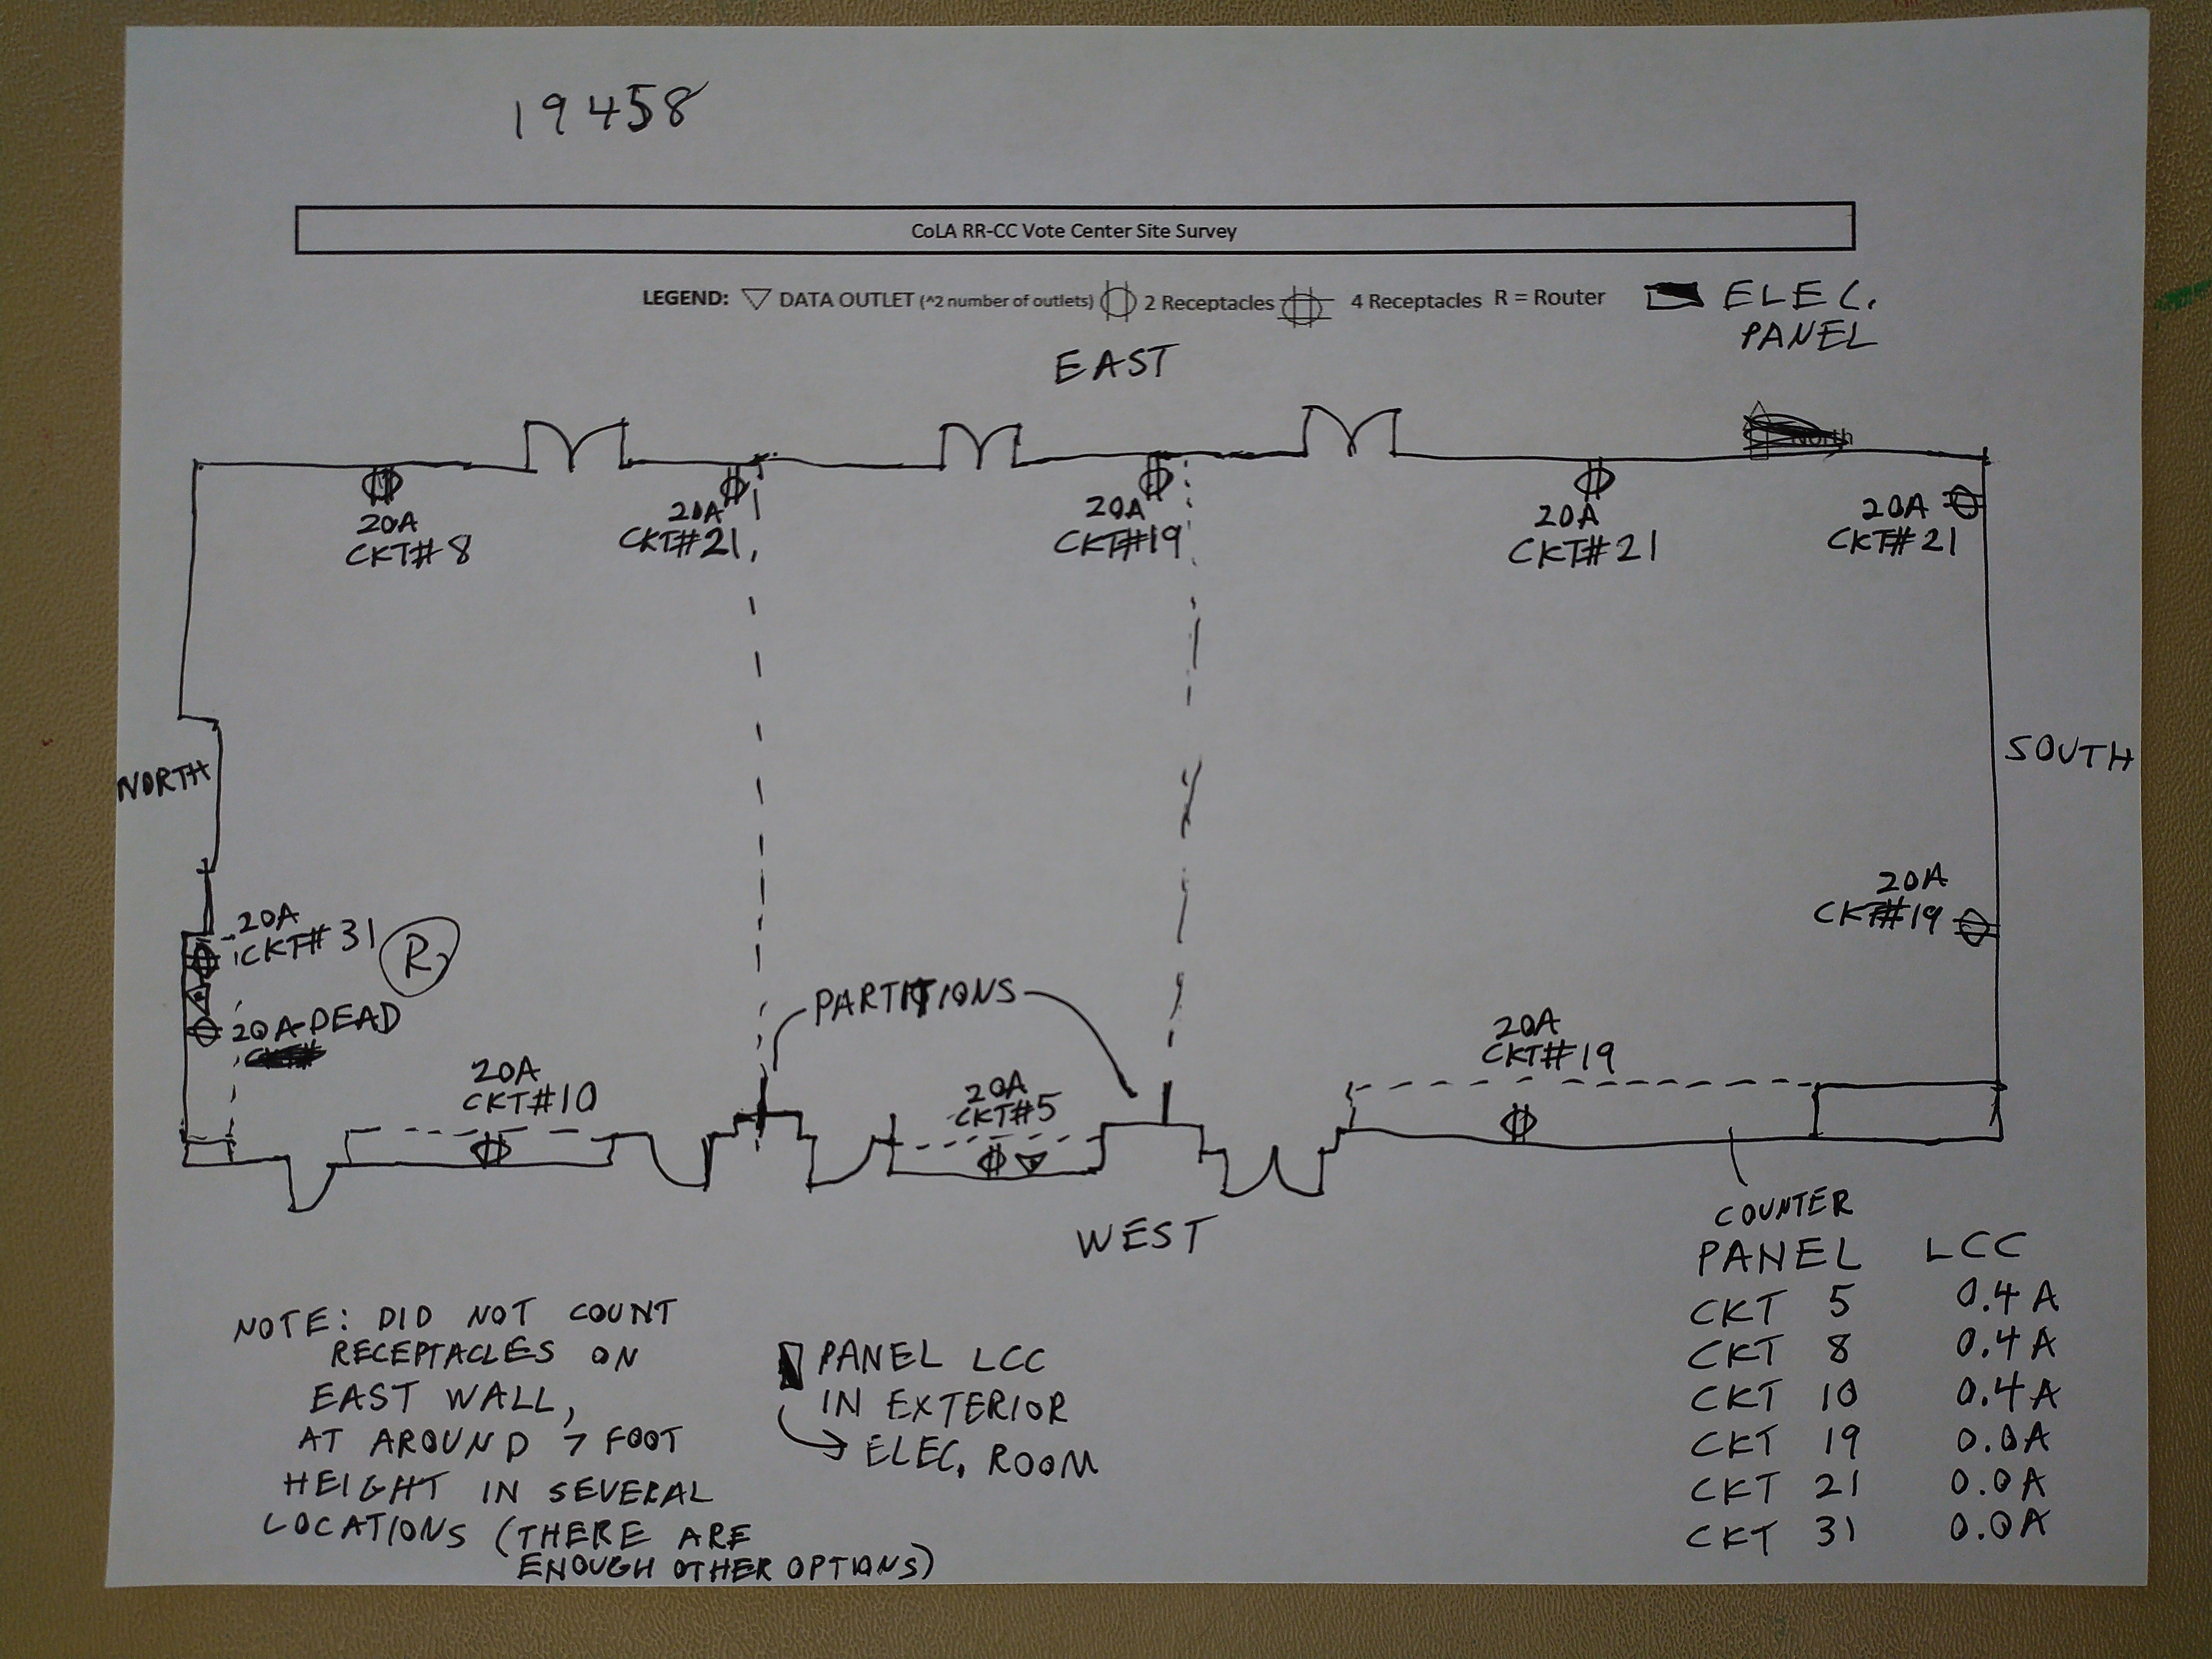 19458
CoLA RR-CC Vote Center Site Survey
LEGEND: DATA OUTLET (^2 number of outlets) 2 Receptacles 4 Receptacles R = Router ELEC.
PANEL
EAST
20A
CKT# 8
20A
CKT#21
20A
CKT#19
20A
CKT# 21
20A
CKT# 21
NORTH
SOUTH
20A
CKT#19
20A
CKT# 31
R
20A DEAD
PARTITIONS
20A
CKT#10
20A
CKT#5
20A
CKT#19
WEST
COUNTER
PANEL LCC
CKT 5 0.4 A
CKT 8 0.4 A
CKT 10 0.4 A
CKT 19 0.0A
CKT 21 0.0A
CKT 31 0.0A
NOTE: DID NOT COUNT
RECEPTACLES ON
EAST WALL,
AT AROUND 7 FOOT
HEIGHT IN SEVERAL
LOCATIONS (THERE ARE
ENOUGH OTHER OPTIONS)
PANEL LCC
IN EXTERIOR
ELEC. ROOM